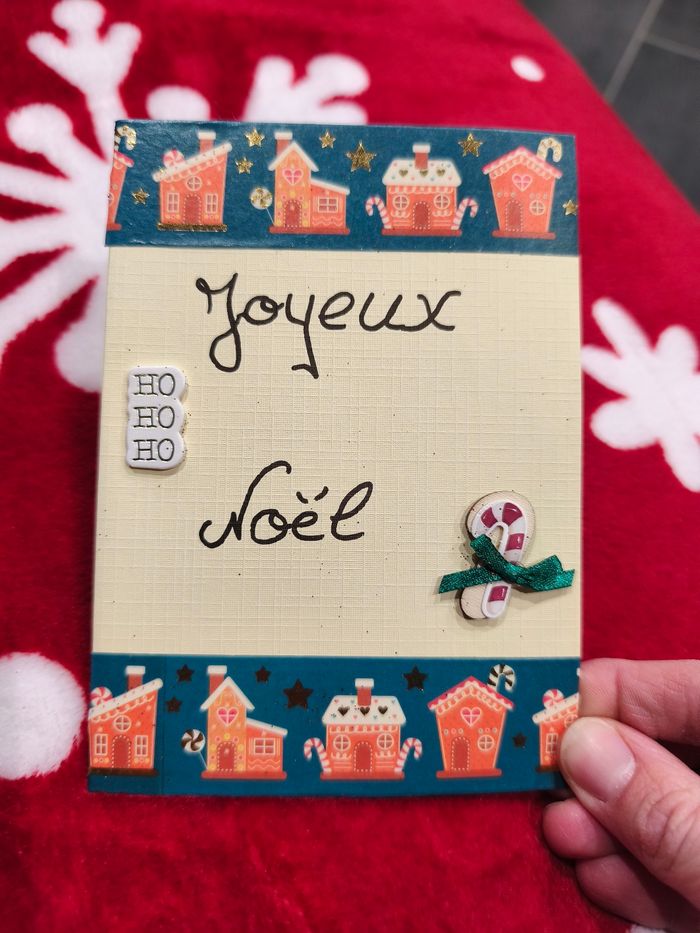 Joyeux
HO
HO
HO
Noël